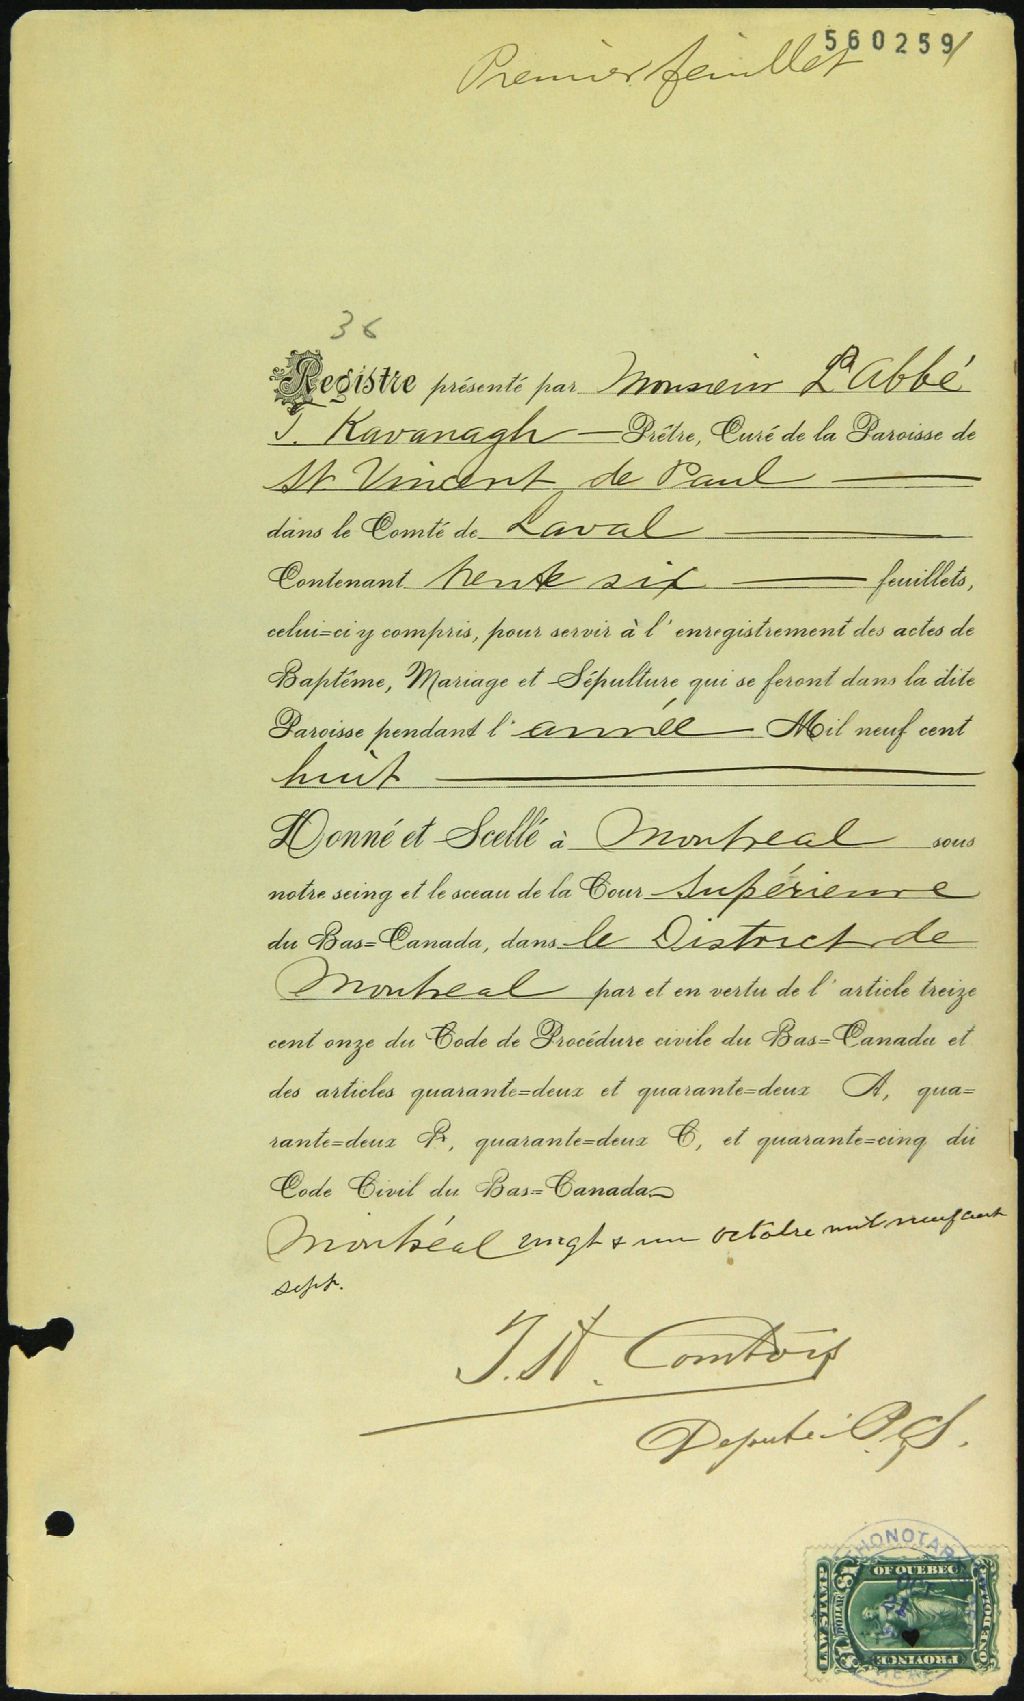 560259
Premier feuillet
36
Registre présenté par Monsieur L'Abbé
J. Kavanagh — Prêtre, Curé de la Paroisse de
St Vincent de Paul —
dans le Comté de Laval —
Contenant trente six — feuillets,
celui=ci y compris, pour servir à l'enregistrement des actes de
Baptême, Mariage et Sépulture qui se feront dans la dite
Paroisse pendant l'année — Mil neuf cent
huit —
Donné et Scellé à Montreal sous
notre seing et le sceau de la Cour Supérieure
du Bas=Canada, dans le District de
Montreal par et en vertu de l'article treize
cent onze du Code de Procédure civile du Bas=Canada et
des articles quarante=deux et quarante=deux A, qua=
rante=deux B, quarante=deux C, et quarante=cinq du
Code Civil du Bas=Canada
Montréal vingt & un octobre mil neuf cent
sept.
J. St. Comtois
Deputé P.C.S.
THONOTAR
OCT
21
LAW STAMP
$1 DOLLAR $1
OF QUEBEC
PROVINCE
ONE DOLLAR